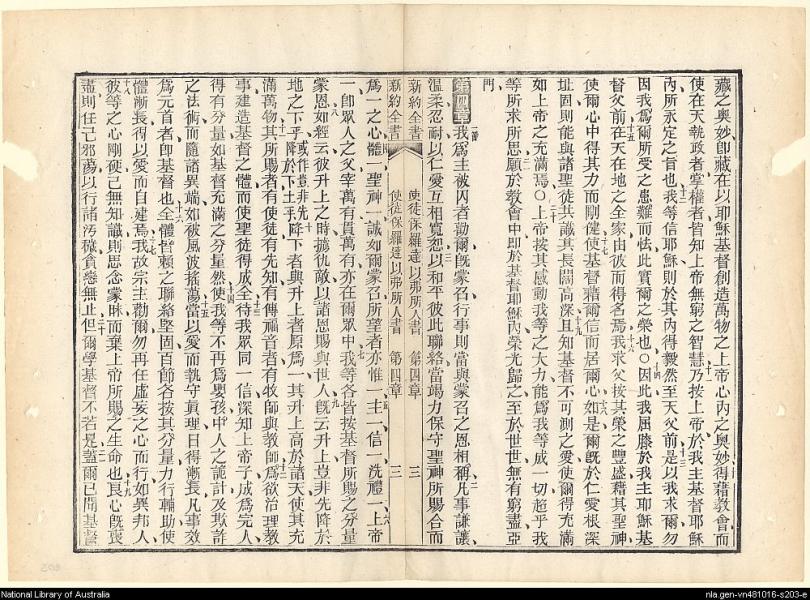 藏之奧妙卽藏在以耶穌基督創造萬物之上帝心內之奧妙得藉教會而
使在天執政者掌權者皆知上帝無窮之智慧乃按上帝於我主基督耶穌
內所永定之旨也我等信耶穌則於其內得毅然至天父前是以我求爾勿
因我爲爾所受之患難而怯此實爾之榮也○因此我屈膝於我主耶穌基
督父前在天在地之全家由彼而得名焉我求父按其榮之豐盛藉其聖神
使爾心中得其力而剛健使基督藉爾信而居爾心如是爾旣於仁愛根深
址固則能與諸聖徒共識其長闊高深且知基督不可測之愛使爾得充滿
如上帝之充滿焉○上帝按其感動我等之大力能爲我等成一切超乎我
等所求所思願於教會中卽於基督耶穌內榮光歸之至於世世無有窮盡亞
門
第四章我爲主被囚者勸爾旣蒙召行事則當與蒙召之恩相稱凡事謙讓
溫柔忍耐以仁愛互相寬恕以和平彼此聯絡當竭力保守聖神所賜合而
新約全書 使徒保羅達以弗所人書 第四章 三
新約全書 使徒保羅達以弗所人書 第四章 三
爲一之心體一聖神一誠如爾蒙召所望者亦惟一主一信一洗禮一上帝
一卽眾人之父宰萬有貫萬有亦在爾眾中我等各皆按基督所賜之分量
蒙恩如經云彼升上之時擄仇敵以諸恩賜與世人旣云升上豈非先降於
地之下乎或作豈非先降於下土乎降下者與升上者原爲一其升上高於諸天使其充
滿萬物其所賜者有使徒有先知有傳福音者有牧師與教師爲欲治理教
事建造基督之體而使聖徒得成全待我眾同一信深知上帝子成爲完人
得有分量如基督充滿之分量然使我等不再爲嬰孩中人之詭計及欺詐
之法術而隨諸異端如被風波搖蕩當以愛而執守眞理日得漸長凡事效
爲元首者卽基督也全體皆賴之聯絡堅固百節各按其分量力行輔助使
體漸長得以愛而自建焉故宗主勸爾勿再任虛妄之心而行如異邦人
彼等之心剛硬己無知識則思念蒙昧而棄上帝所賜之生命也良心旣喪
盡則任己邪蕩以行諸汚穢貪戀無止但爾學基督不若是蓋爾已聞基督
National Library of Australia
nla.gen-vn481016-s203-e